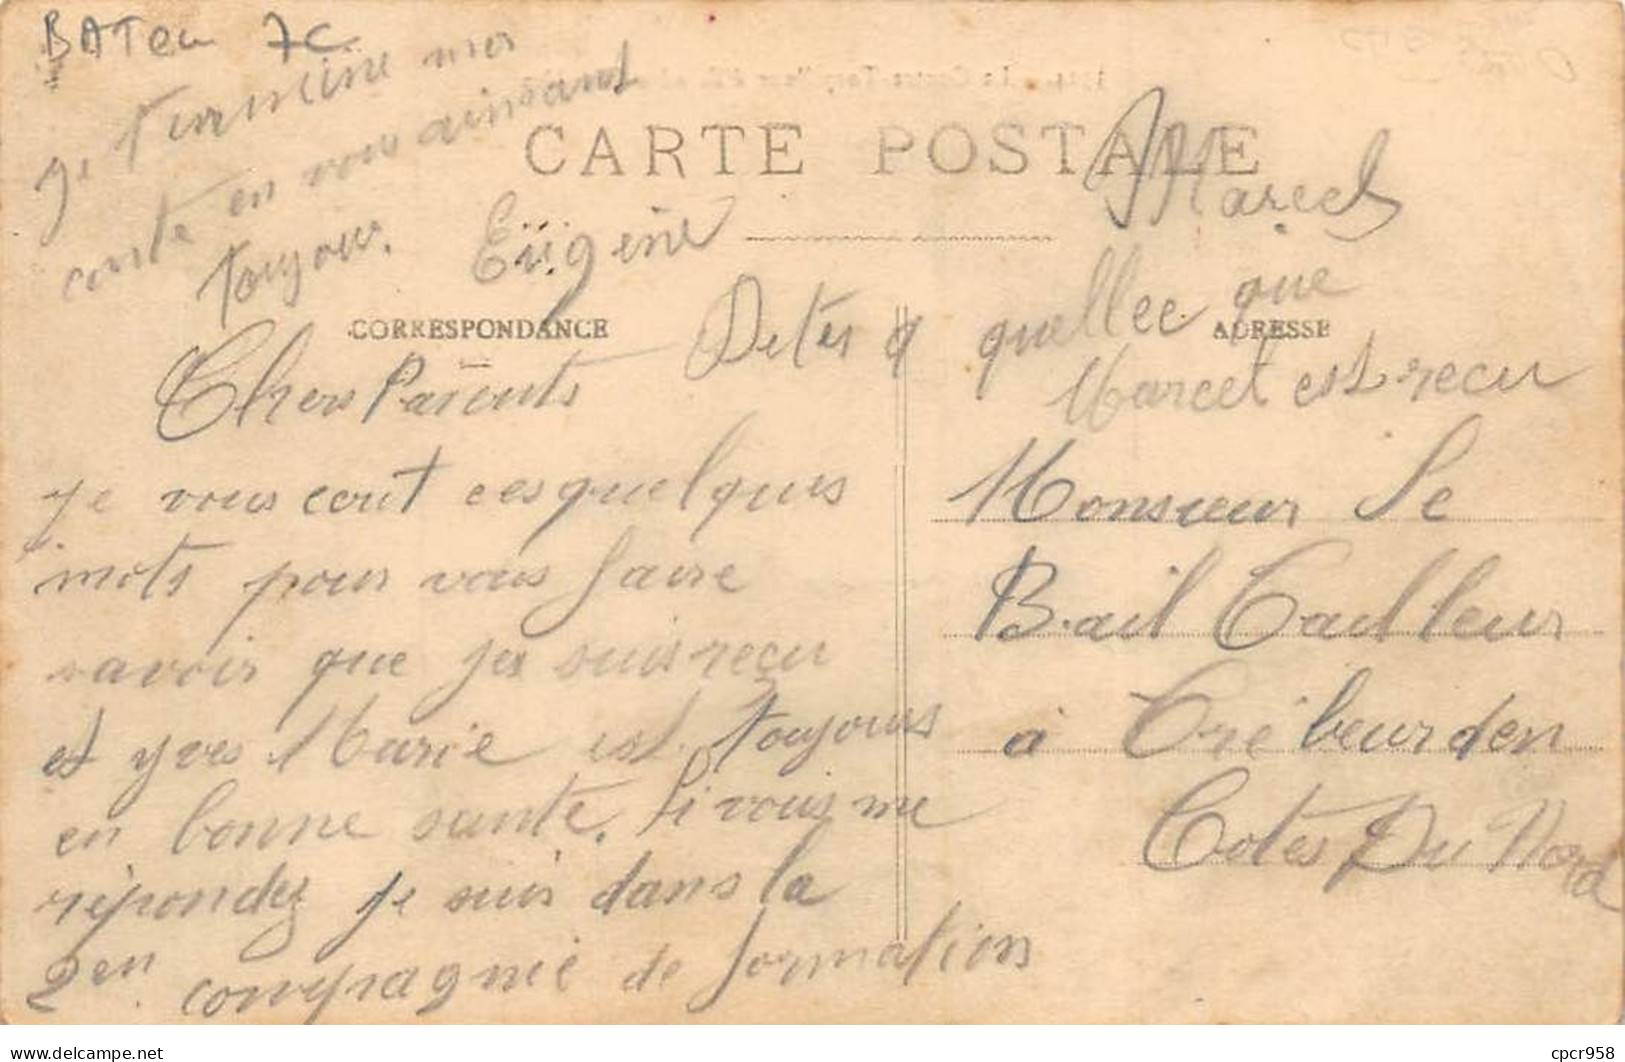 BATeu 7C
CARTE POSTALE
CORRESPONDANCE
ADRESSE
Chers Parents
je vous ecrit ces quelques
mots pour vous faire
savoir que je suis reçu
et yves Marie est toujours
en bonne sante. Si vous me
répondez je suis dans la
2em compagnie de formation
je termine mes
carte en vous aimsant
toujour.
Eugène
Dites a quellee que
Marcel est recu
Marcel
Monsieur Le
Bail Tailleur
à Trébeurden
Cotes Du Nord
delcampe.net
cpcr958